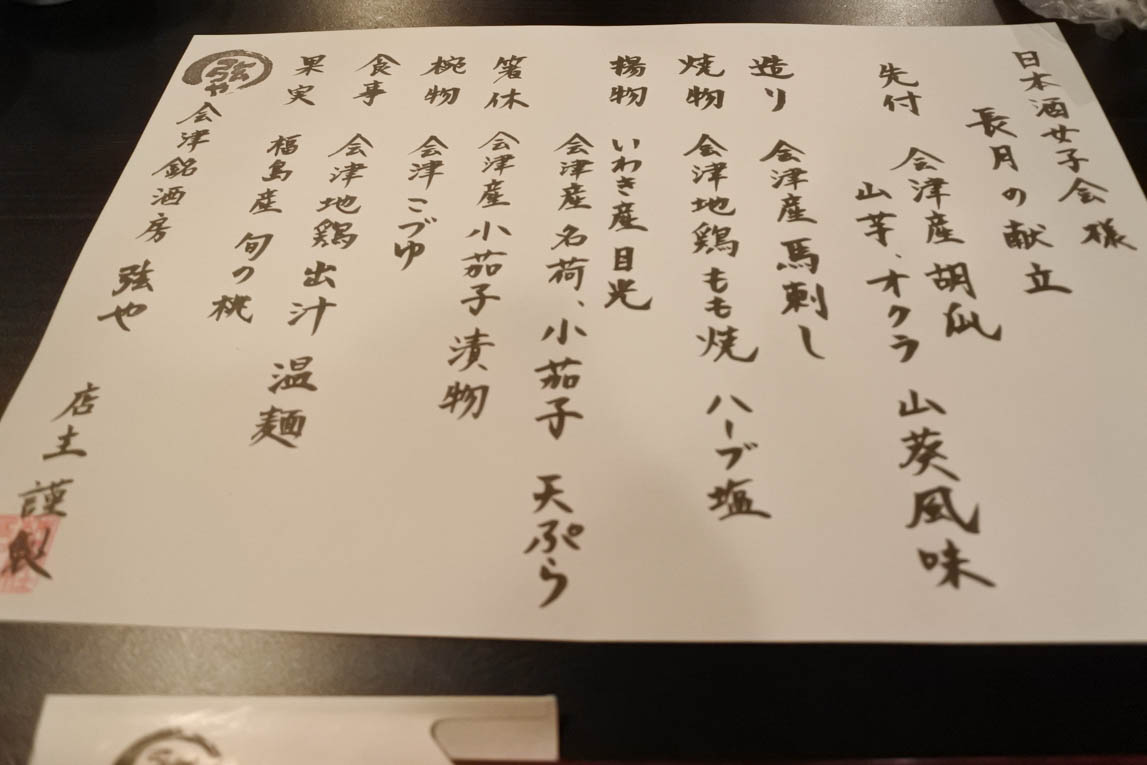 日本酒女子会様
長月の献立
先付 会津産胡瓜
山芋、オクラ 山葵風味
造り 会津産馬刺し
焼物 会津地鶏もも焼 ハーブ塩
揚物 いわき産目光
会津産名荷、小茄子 天ぷら
箸休 会津産小茄子 漬物
椀物 会津こづゆ
食事 会津地鶏出汁 温麺
果実 福島産 旬の桃
弦や
会津銘酒房 弦や 店主 謹製